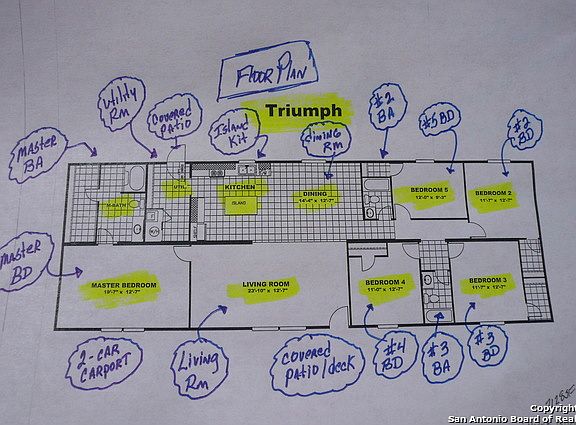 FLOOR PLAN
Triumph
UTILITY
RM
COVERED
PATIO
ISLAND
KIT
DINING
RM
#2
BA
#5 BD
#2
BD
MASTER
BA
M-BATH
UTIL.
KITCHEN
ISLAND
DINING
14'-4" x 12'-7"
BEDROOM 5
12'-0" x 9'-3"
BEDROOM 2
11'-7" x 12'-7"
MASTER
BD
MASTER BEDROOM
19'-7" x 12'-7"
LIVING ROOM
23'-10" x 12'-7"
BEDROOM 4
11'-0" x 12'-7"
BEDROOM 3
11'-7" x 12'-7"
2-CAR
CARPORT
LIVING
RM
COVERED
PATIO/DECK
#4
BD
#3
BA
#3
BD
Copyright
San Antonio Board of Real